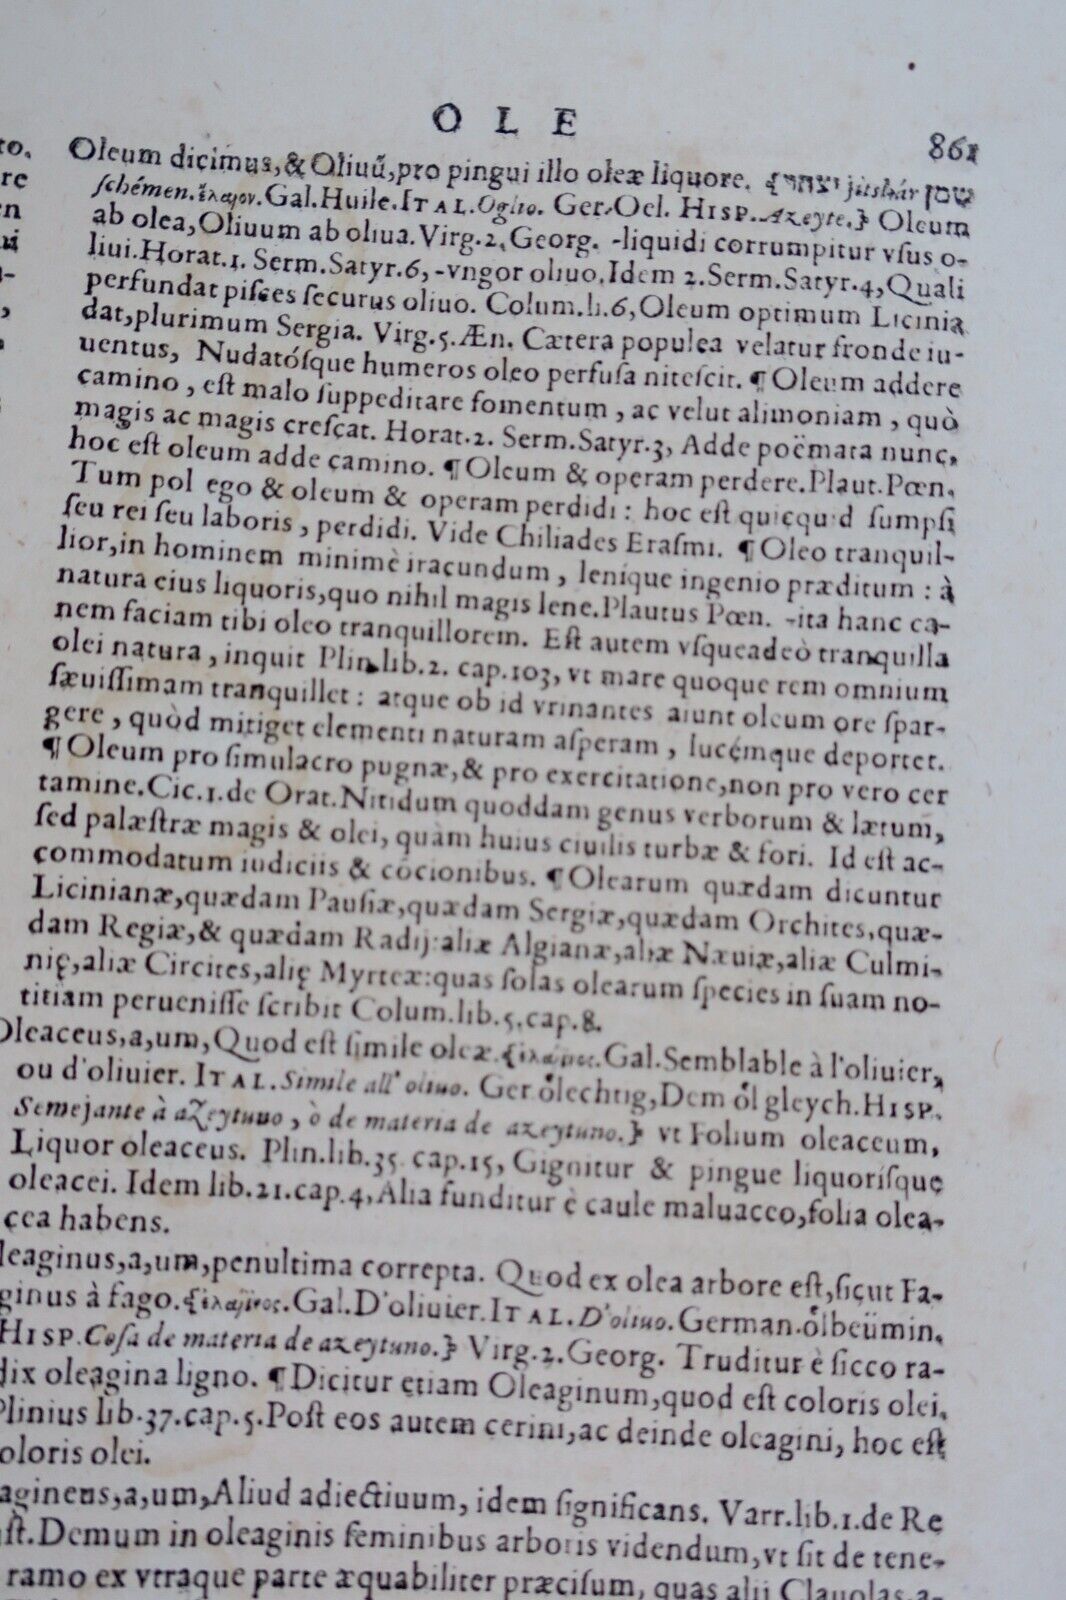 O L E
861
Oleum dicimus, & Oliuũ, pro pingui illo oleæ liquore. {יצהר jitshár שמן
schémen. ἔλαιον. Gal. Huile. ITAL. Oglio. Ger. Oel. HISP. Azeyte.} Oleum
ab olea, Oliuum ab oliua. Virg. 2. Georg. -liquidi corrumpitur vsus o-
liui. Horat. 1. Serm. Satyr. 6, -vngor oliuo. Idem 2. Serm. Satyr. 4, Quali
perfundat pisces securus oliuo. Colum. li. 6, Oleum optimum Licinia
dat, plurimum Sergia. Virg. 5. Æn. Cætera populea velatur fronde iu-
uentus, Nudatósque humeros oleo perfusa nitescit. ¶ Oleum addere
camino, est malo suppeditare fomentum, ac velut alimoniam, quò
magis ac magis crescat. Horat. 2. Serm. Satyr. 3, Adde poëmata nunc,
hoc est oleum adde camino. ¶ Oleum & operam perdere. Plaut. Pœn.
Tum pol ego & oleum & operam perdidi: hoc est quicquid sumpsi
seu rei seu laboris, perdidi. Vide Chiliades Erasmi. ¶ Oleo tranquil-
lior, in hominem minimè iracundum, lenique ingenio præditum: à
natura eius liquoris, quo nihil magis lene. Plautus Pœn. -ita hanc ca-
nem faciam tibi oleo tranquillorem. Est autem vsqueadeò tranquilla
olei natura, inquit Plin. lib. 2. cap. 103, vt mare quoque rem omnium
sæuissimam tranquillet: atque ob id vrinantes aiunt oleum ore spar-
gere, quòd mitiget elementi naturam asperam, lucémque deportet.
¶ Oleum pro simulacro pugnæ, & pro exercitatione, non pro vero cer
tamine. Cic. 1. de Orat. Nitidum quoddam genus verborum & lætum,
sed palæstræ magis & olei, quàm huius ciuilis turbæ & fori. Id est ac-
commodatum iudiciis & cōcionibus. ¶ Olearum quædam dicuntur
Licinianæ, quædam Pausiæ, quædam Sergiæ, quædam Orchites, quæ-
dam Regiæ, & quædam Radij: aliæ Algianæ, aliæ Næuiæ, aliæ Culmi-
nię, aliæ Circites, alię Myrteæ: quas solas olearum species in suam no-
titiam peruenisse scribit Colum. lib. 5. cap. 8.
Oleaceus, a, um, Quod est simile oleæ. {ἐλαΐνος. Gal. Semblable à l'oliuier,
ou d'oliuier. ITAL. Simile all' oliuo. Ger ölechtig, Dem öl gleych. HISP.
Semejante à azeytuno, ò de materia de azeytuno.} vt Folium oleaceum,
Liquor oleaceus. Plin. lib. 35. cap. 15, Gignitur & pingue liquorísque
oleacei. Idem lib. 21. cap. 4, Alia funditur è caule maluaceo, folia olea-
cea habens.
leaginus, a, um, penultima correpta. Quod ex olea arbore est, sicut Fa-
ginus à fago. {ἐλαΐνος. Gal. D'oliuier. ITAL. D'oliuo. German. ölbeümin.
HISP. Cosa de materia de azeytuno.} Virg. 2. Georg. Truditur è sicco ra-
dix oleagina ligno. ¶ Dicitur etiam Oleaginum, quod est coloris olei.
Plinius lib. 37. cap. 5. Post eos autem cerini, ac deinde oleagini, hoc est
oloris olei.
agineus, a, um, Aliud adiectiuum, idem significans. Varr. lib. 1. de Re
ust. Demum in oleaginis seminibus arboris videndum, vt sit de tene-
ramo ex vtraque parte æquabiliter præcisum, quas alii Clauolas, a-